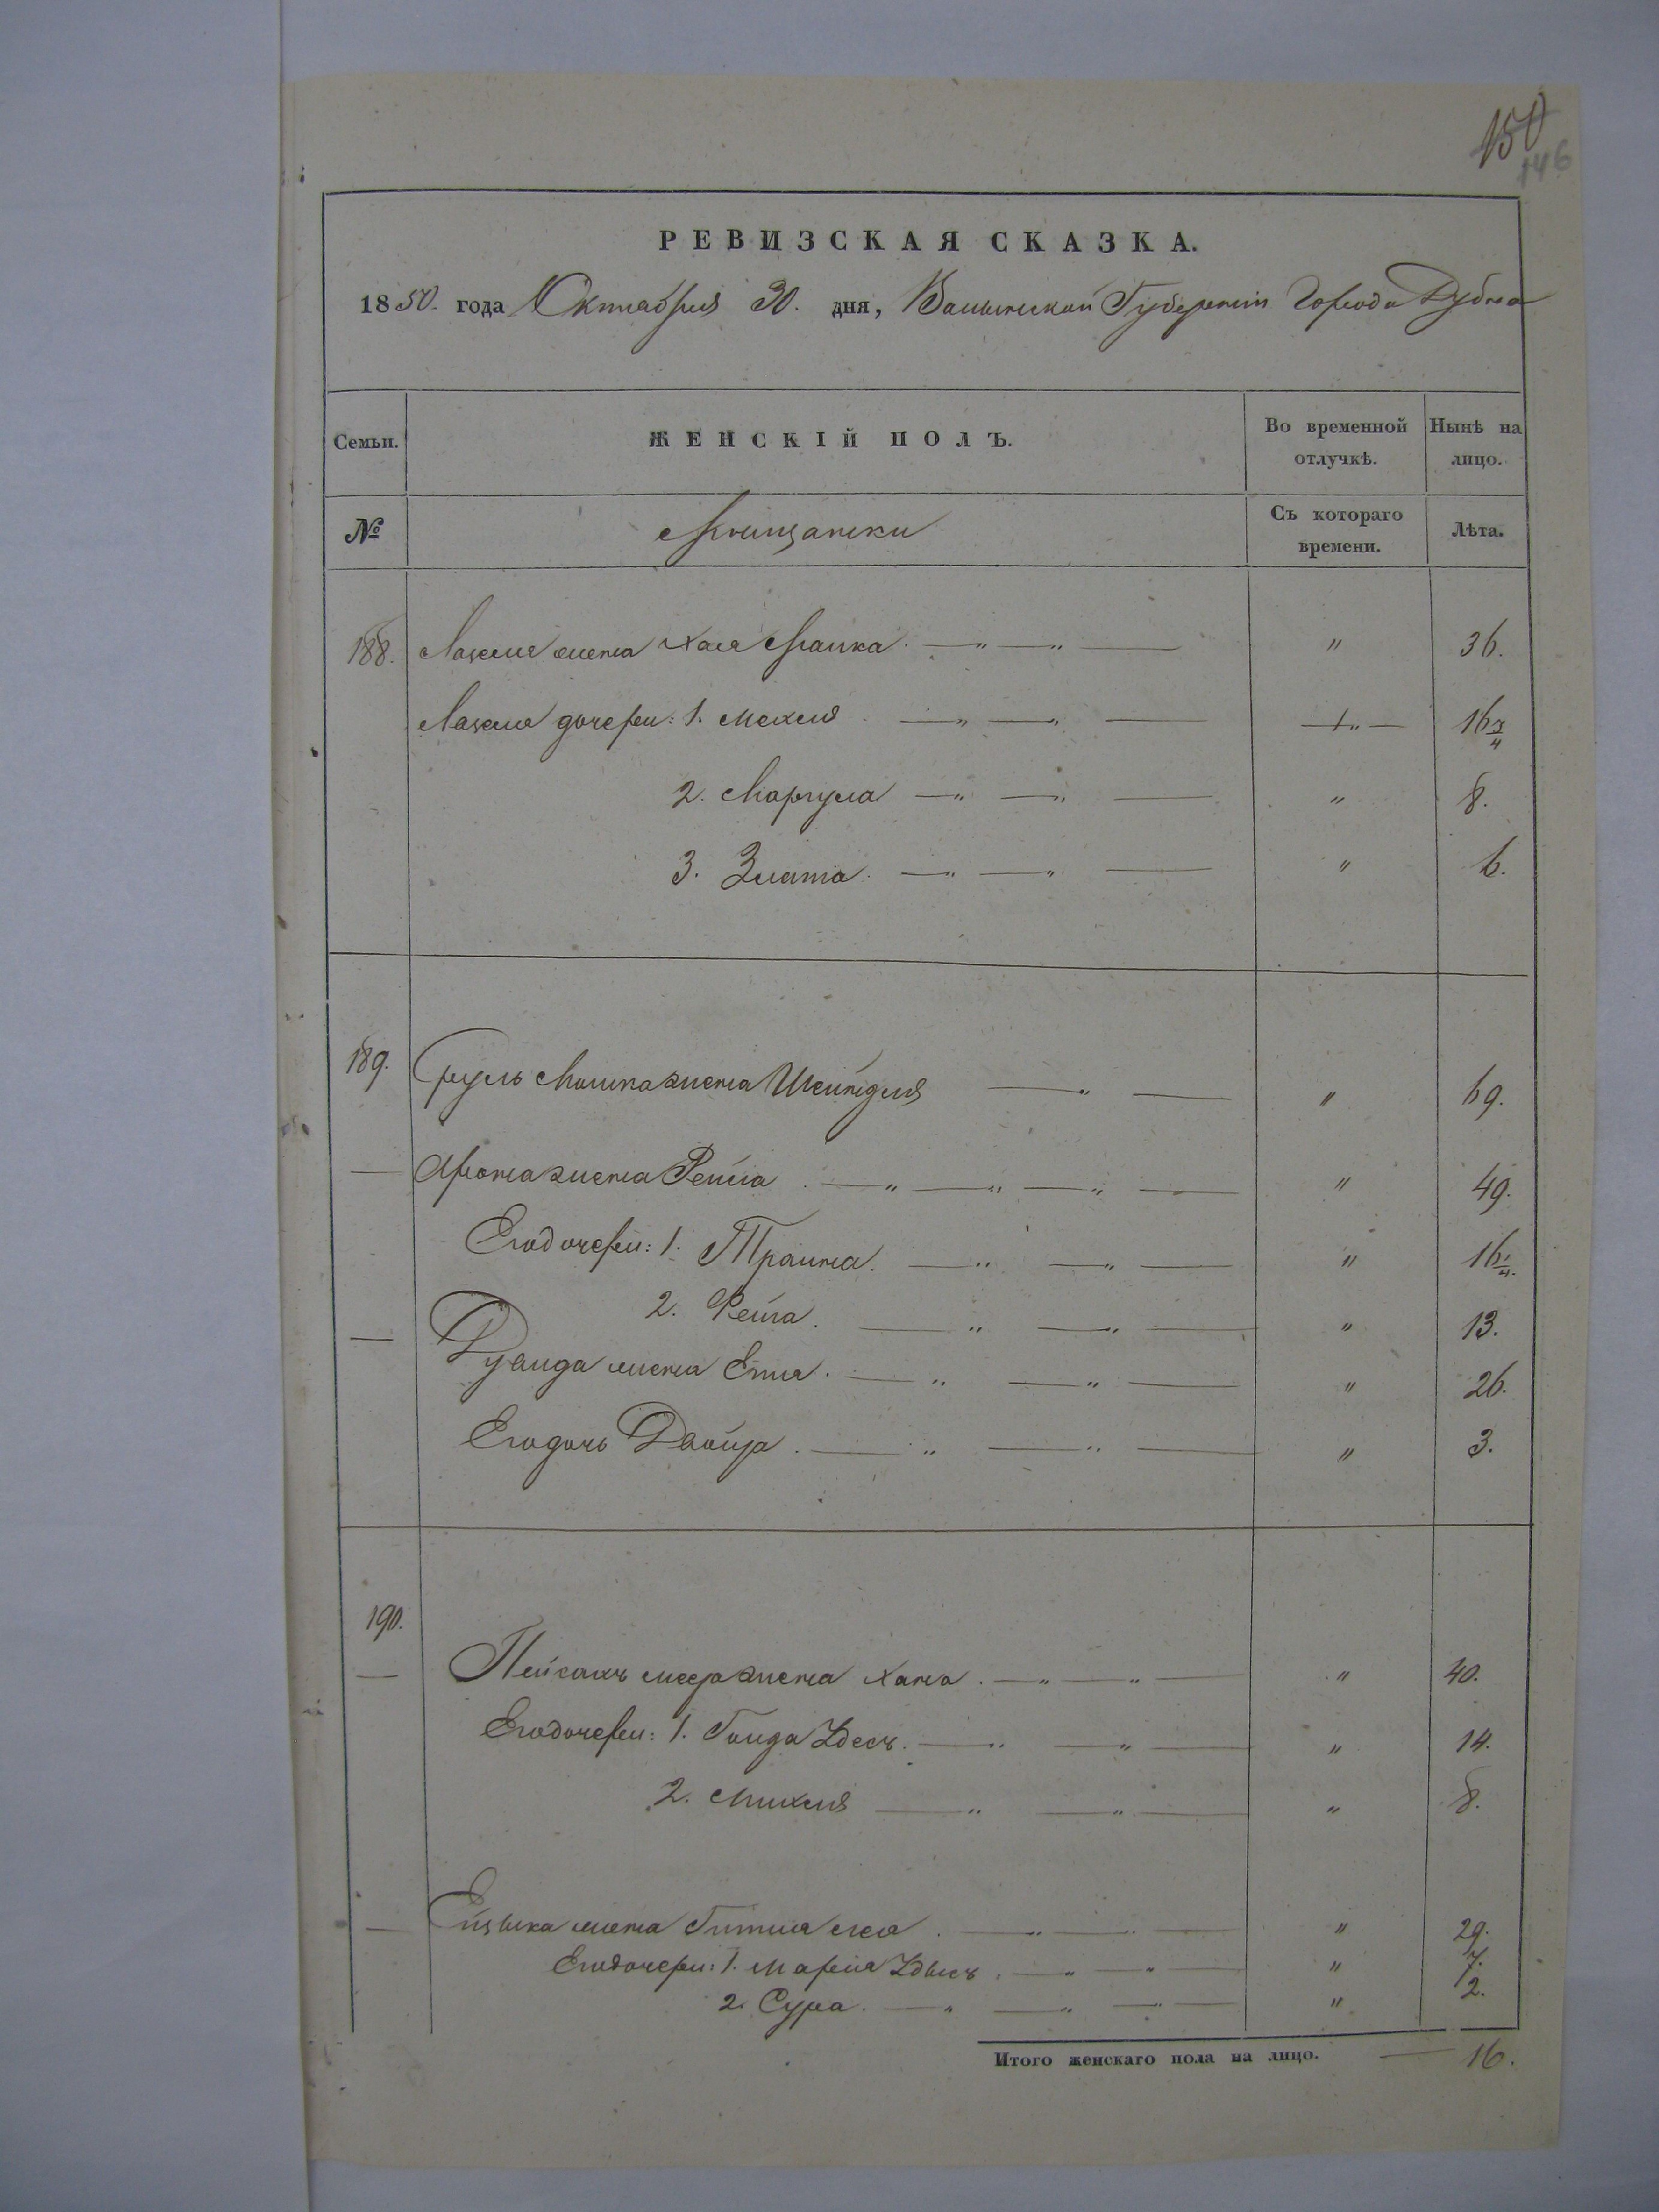 150
146
РЕВИЗСКАЯ СКАЗКА.
1850. года Октября 30. дня, Волынской Губернии Города Дубна
Семьи. ЖЕНСКІЙ ПОЛЪ. Во временной отлучкѣ. Нынѣ на лицо.
№ Мѣщанки Съ котораго времени. Лѣта.
188. Лазеля жена Хая Малка. " 36.
Лазеля дочери: 1. Мехля " 16 3/4
2. Маргула " 8.
3. Злата. " 6.
189. Сруль Мошка жена Шейндля " 69.
Арона жена Рейза " 49.
Его дочери: 1. Трайна. " 16 1/4.
2. Рейза. " 13.
жена Етля. " 26.
Его дочь Двойра. " 3.
190.
Пейсахъ Меера жена Хана. " 40.
Его дочери: 1. Голда Удесъ. " 14.
2. Михля " 8.
жена Гитля Лея. " 29.
Его дочери: 1. Марея " 7.
2. Сура. " 2.
Итого женскаго пола на лицо. 16.